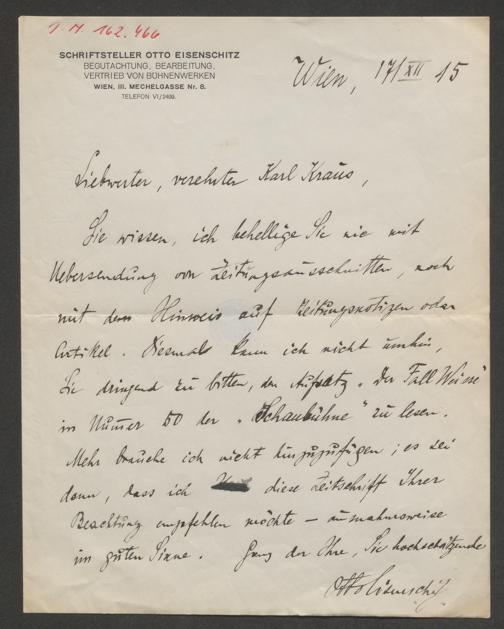 I. N. 162.466
SCHRIFTSTELLER OTTO EISENSCHITZ
BEGUTACHTUNG, BEARBEITUNG,
VERTRIEB VON BÜHNENWERKEN
WIEN, III. MECHELGASSE Nr. 8.
TELEFON VI/2499.
Wien, 17/XII 15
Liebwerter, verehrter Karl Kraus,
Sie wissen, ich behellige Sie nie mit
Uebersendung von Zeitungsausschnitten, noch
mit dem Hinweis auf Zeitungsnotizen oder
Artikel. Diesmal kann ich nicht umhin,
Sie dringend zu bitten, den Aufsatz „Der Fall Weisse"
in Numer 50 der „Schaubühne" zu lesen.
Mehr brauche ich nicht hinzuzufügen; es sei
denn, dass ich diese Zeitschrift Ihrer
Beachtung empfehlen möchte – ausnahmsweise
im guten Sinne. Ganz der Ihre, Sie hochschätzende
Otto Eisenschitz